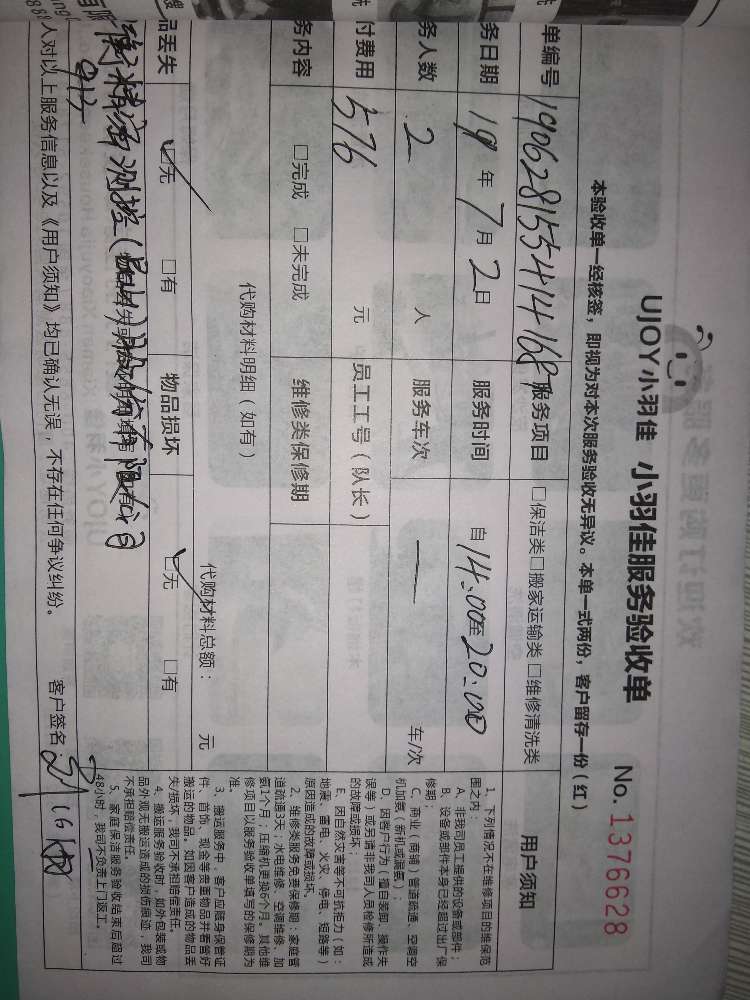 UJOY小羽佳 小羽佳服务验收单
No. 1376628
本验收单一经核签，即视为对本次服务验收无异议。本单一式两份，客户留存一份（红）
单编号 服务项目 □保洁类□搬家运输类□维修清洗类
务日期 19 年 7 月 2 日 服务时间 自 14:00至20:00
务人数 2 人 服务车次 — 车/次
付费用 576 元 员工工号（队长）
务内容 □完成 □未完成 维修类保修期
代购材料明细（如有）
代购材料总额： 元
品丢失 □无 □有 物品损坏 □无 □有
人对以上服务信息以及《用户须知》均已确认无误，不存在任何争议纠纷。 客户签名：
用户须知
1、下列情况不在维修项目的维保范
围之内：
A、非我司员工提供的设备或部件；
B、设备或部件本身已经超过出厂保
修期；
C、商业（商铺）管道疏通、空调空
机加氨（新机或漏氨）；
D、因客户行为（擅自装卸、操作失
误等）或另请非我司人员检修所造成
的故障或损坏；
E、因自然灾害等不可抗拒力（如：
地震、雷电、火灾、停电、短路等）
原因造成的故障或损坏。
2、维修类服务免费保修期：家庭管
道疏通3天；水电维修、空调维修、加
氨1个月，压缩机更换6个月。其他维
修项目以服务验收单填写的保修期为
准。
3、搬运服务中，客户应随身保管证
件、首饰、现金等贵重物品并看管好
搬运的物品。如因客户造成的物品丢
失/损坏，我司不承担赔偿责任。
4、搬运服务验收时，如外包装或物
品外观无搬运造成的损伤痕迹，我司
不承担赔偿责任。
5、家庭保洁服务验收结束后超过
48小时，我司不负责上门返工。